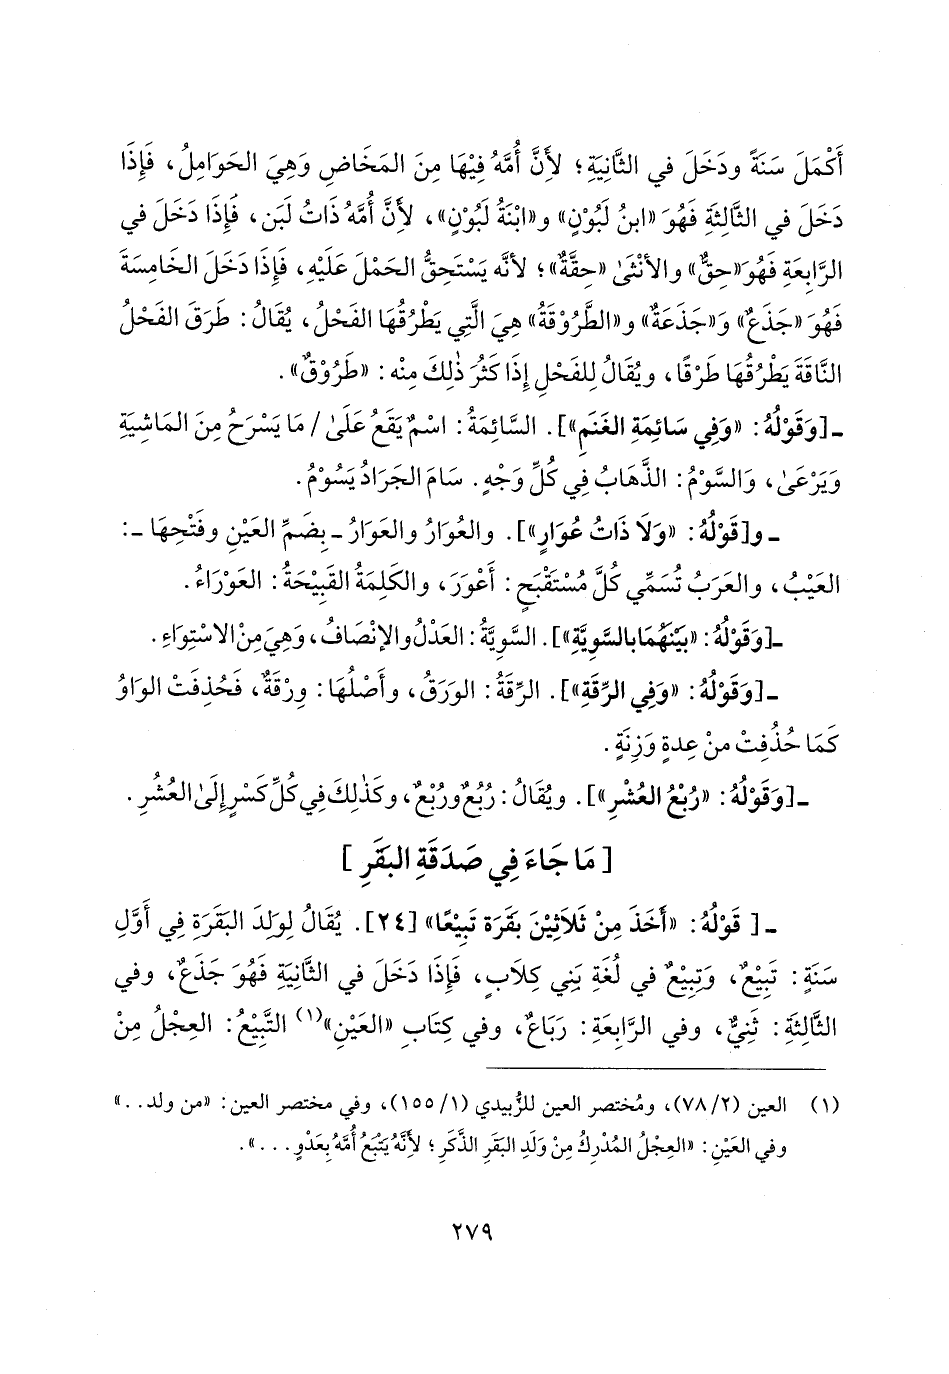 أَكْمَلَ سَنَةً ودَخَلَ في الثَّانِيَةِ؛ لأِنَّ أُمَّهُ فِيْهَا مِنَ المَخَاضِ وَهِيَ الحَوَامِلُ، فَإِذَا
دَخَلَ في الثَّالِثَةِ فَهُوَ «ابنُ لَبُوْنٍ» و«ابْنَةُ لَبُوْنٍ»، لأَنَّ أُمَّهُ ذَاتُ لَبَن، فَإِذَا دَخَلَ في
الرَّابِعَةِ فَهُوَ«حِقٌّ» والأنْثَىٰ «حِقَّةٌ»؛ لأنَّه يَسْتَحِقُّ الحَمْلَ عَلَيْهِ، فَإِذَا دَخَلَ الخَامِسَةَ
فَهُوَ «جَذَعٌ» وَ«جَذَعَةٌ» و«الطَّرُوْقَةُ» هِيَ الَّتِي يَطْرُقُهَا الفَحْلُ، يُقَالُ: طَرَقَ الفَحْلُ
النَّاقَةَ يَطْرُقُهَا طَرْقًا، ويُقَالُ لِلفَحْلِ إِذَا كَثُرَ ذٰلِكَ مِنْه: «طَرُوْقٌ».
ـ [وَقَوْلُهُ: «وَفِي سَائِمَةِ الغَنَمِ»]. السَّائِمَةُ: اسْمٌ يَقَعُ عَلَىٰ / مَا يَسْرَحُ مِنَ المَاشِيَةِ
وَيَرْعَىٰ، وَالسَّوْمُ: الذَّهَابُ فِي كُلِّ وَجْهٍ. سَامَ الجَرَادُ يَسُوْمُ.
ـ و[قَوْلُهُ: «وَلَا ذَاتُ عُوَارٍ»]. والعُوَارُ والعَوَارُ ـ بِضَمِّ العَيْنِ وفَتْحِهَا ـ:
العَيْبُ، والعَرَبُ تُسَمِّي كُلَّ مُسْتَقْبَحٍ: أَعْوَرَ، والكَلِمَةُ القَبِيْحَةُ: العَوْرَاءُ.
ـ [وَقَوْلُهُ: «بَيْنَهُمَا بالسَّوِيَّةِ»]. السَّوِيَّةُ: العَدْلُ والإنْصَافُ، وَهِيَ مِنْ الاسْتِوَاءِ.
ـ [وَقَوْلُهُ: «وَفِي الرِّقَةِ»]. الرِّقَةُ: الوَرَقُ، وأَصْلُهَا: وِرْقَةٌ، فَحُذِفَتْ الوَاوُ
كَمَا حُذُفِتْ منْ عِدةٍ وَزِنَةٍ.
ـ [وَقَوْلُهُ: «رُبْعُ العُشْرِ»]. ويُقَالُ: رُبُعٌ ورُبْعٌ، وكَذٰلِكَ فِي كُلِّ كَسْرٍ إِلَىٰ العُشُرِ.
[ مَا جَاءَ فِي صَدَقَةِ البَقَرِ ]
ـ [ قَوْلُهُ: «أَخَذَ مِنْ ثَلَاثِيْنَ بَقَرَة تَبِيْعًا» [٢٤]. يُقَالُ لِوَلَدَ البَقَرَةِ فِي أَوَّلِ
سَنَةٍ: تَبِيْعٌ، وَتِبِيْعٌ في لُغَةِ بَنِي كِلَابٍ، فَإِذَا دَخَلَ في الثَّانِيَةِ فَهُوَ جَذَعٌ، وفي
الثَّالِثَةِ: ثَنِيٌّ، وفي الرَّابِعَةِ: رَبَاعٌ، وفي كِتَابِ «العَيْنِ»(١) التَّبِيْعُ: العِجْلُ مِنْ
(١) العين (٧٨/٢)، ومُختصر العين للزُّبيدي (١/ ١٥٥)، وفي مختصر العين: «من ولد..»
وفي العَيْنِ: «العِجْلُ المُدْرِكُ مِنْ وَلَدِ البَقَرِ الذَّكَرِ؛ لأنَّهُ يَتْبَعُ أُمَّهُ بِعَدْوٍ...».
٢٧٩